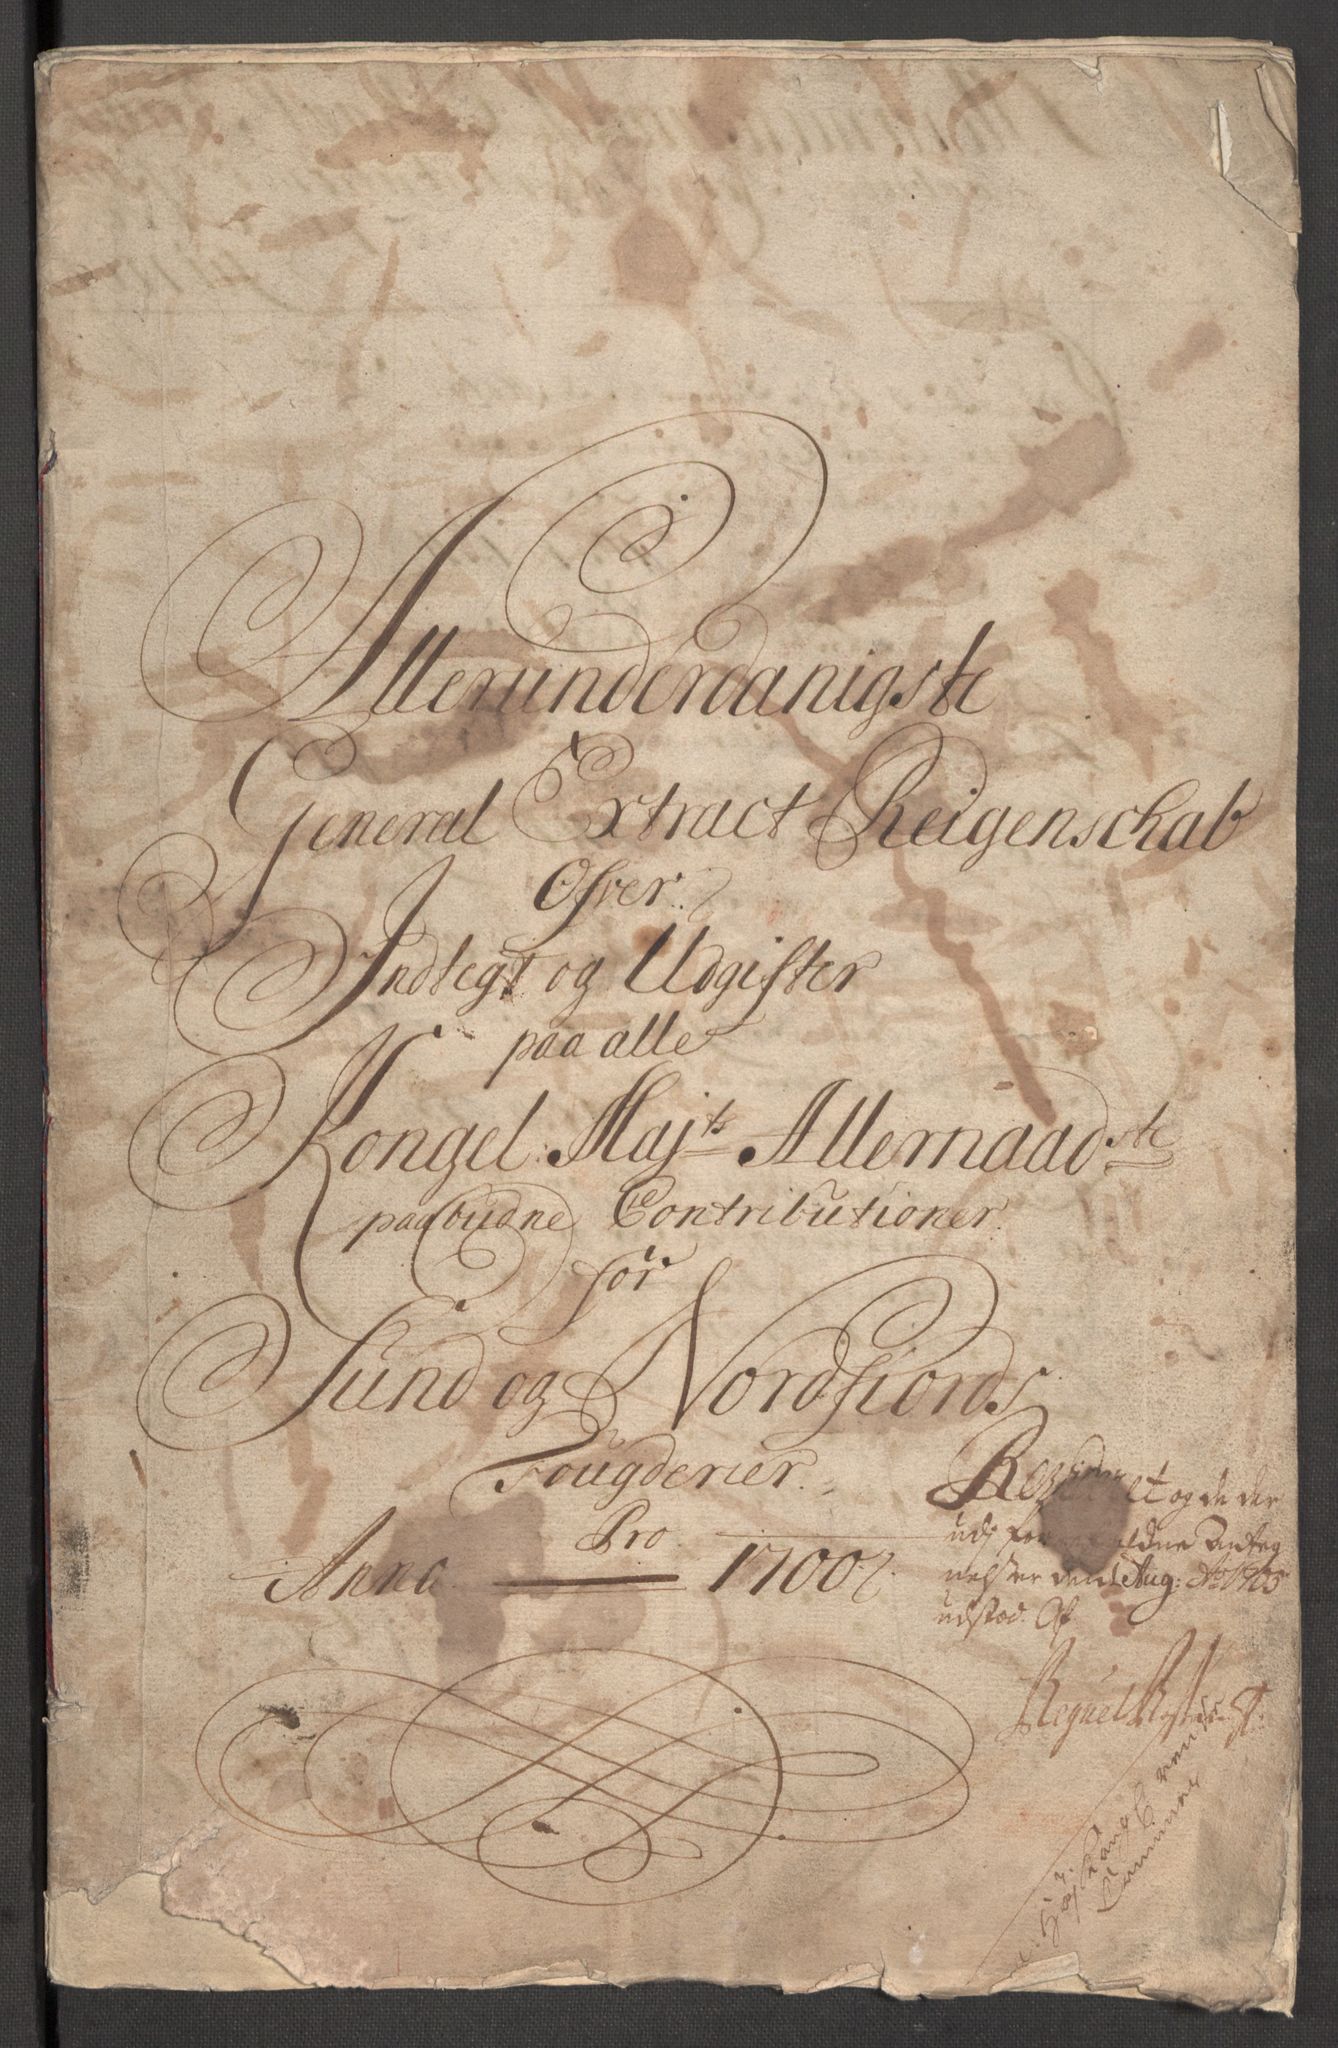 Allerunderdanigste
General Extract Reigenschab
Ofver
Indtegt og Udgifter
paa alle
Kongel: Majts Allernaadste
paabudne Contributioner
for
Sund og Nordfiords
Fougderier
Pro
Anno 1700
og de der
Anteg
nelser den Aug: Ao 1705
udstod. Af